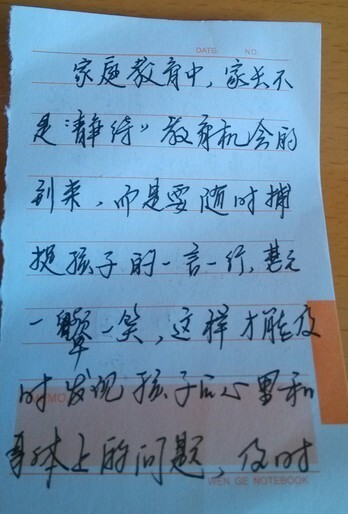 DATE: NO.
家庭教育中，家长不
是“静待”教育机会的
到来，而是要随时捕
捉孩子的一言一行，甚至
一颦一笑，这样才能及
时发现孩子心里和
MEMO
身体上的问题，及时
WEN GE NOTEBOOK